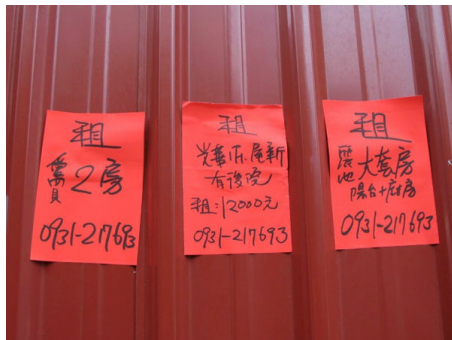 租
2房
0931-217693
租
光華 新
有後院
租:12000元
0931-217693
租
大套房
陽台+廚房
0931-217693